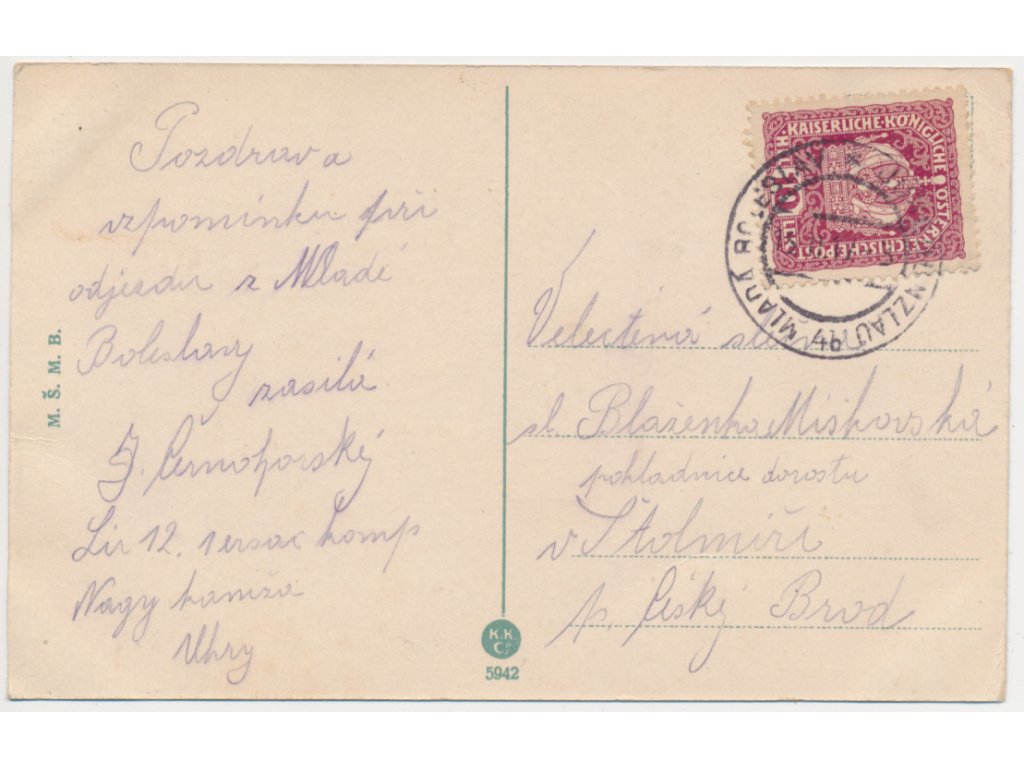 Pozdrav a
vzpomínku při
odjezdu z Mladé
Boleslavy
zasílá
J. Černohorský
Lir 12. 1 ersac komp
Nagy kaniža
Uhry
M. Š. M. B.
K. K.
Co.
5942
KAISERLICHE KÖNIGLICHE ÖSTERREICHISCHE POST
HELLER 10
MLADÁ BOLESLAV
Velectěná slečna
sl. Blaženka Miškovská
pokladnice dorostu
v Štolmíři
p. Český Brod